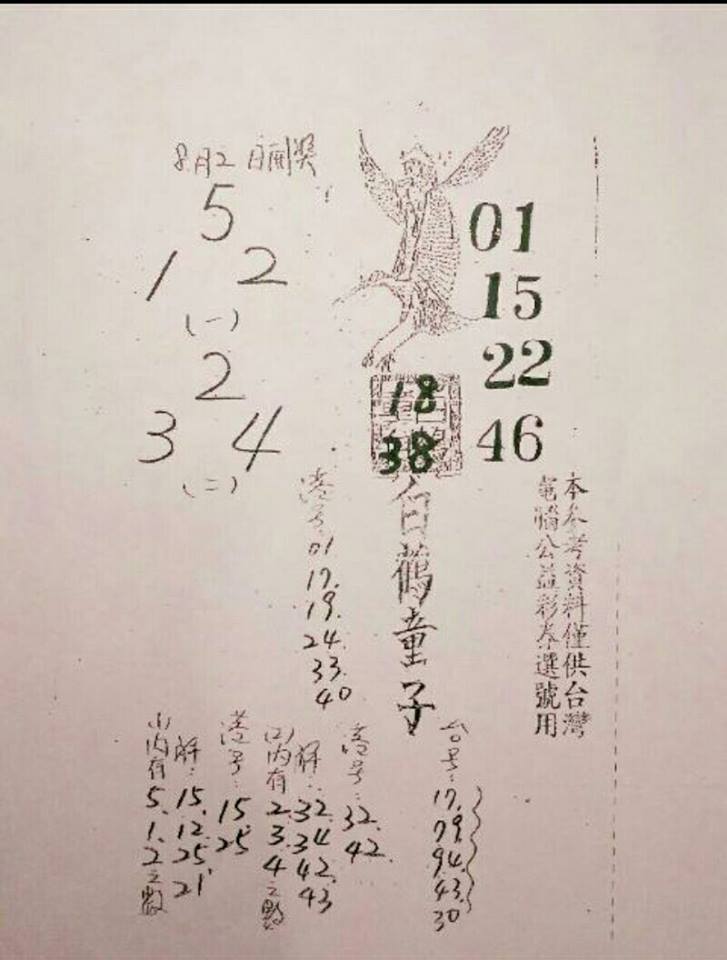 8月2日開獎
5
1 2
(一)
2
3 4
(二)
01
15
22
46
18
38
白鶴童子
本參考資料僅供台灣
電腦公益彩券選號用
港号:
01
17.
19.
24.
33.
40
台号:
17.
79.
94.
43.
30
港号:
32.
42.
(2)内有2.3.4之數
解:
32.
34
42.
43
港号:
15.
25
(1)内有5.1.2之數
解:
15.
12.
25
21